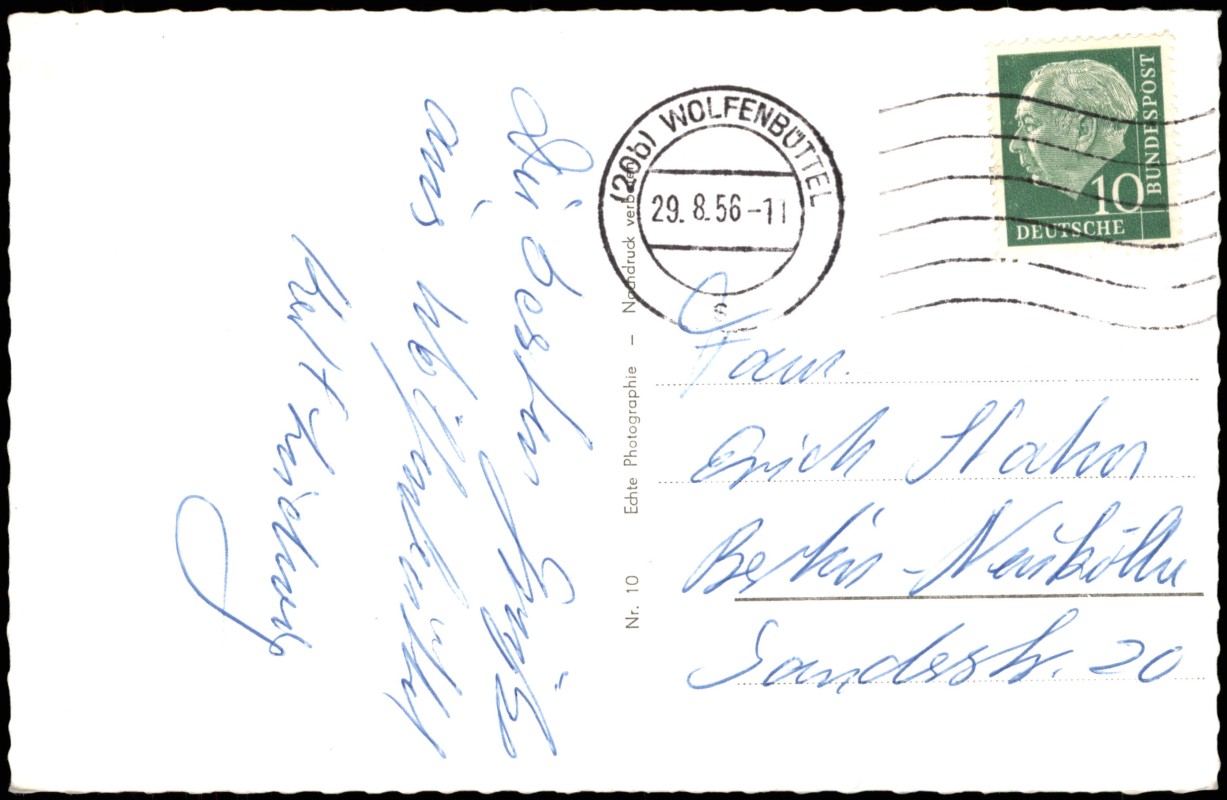 Die besten Grüße
aus Wolfenbüttel
Nr. 10 Echte Photographie – Nachdruck verboten
(20b) WOLFENBÜTTEL
29.8.56-11
c
BUNDESPOST
10
DEUTSCHE
Fam.
Erich Hahn
Berlin-Neukölln
Sanderstr. 20